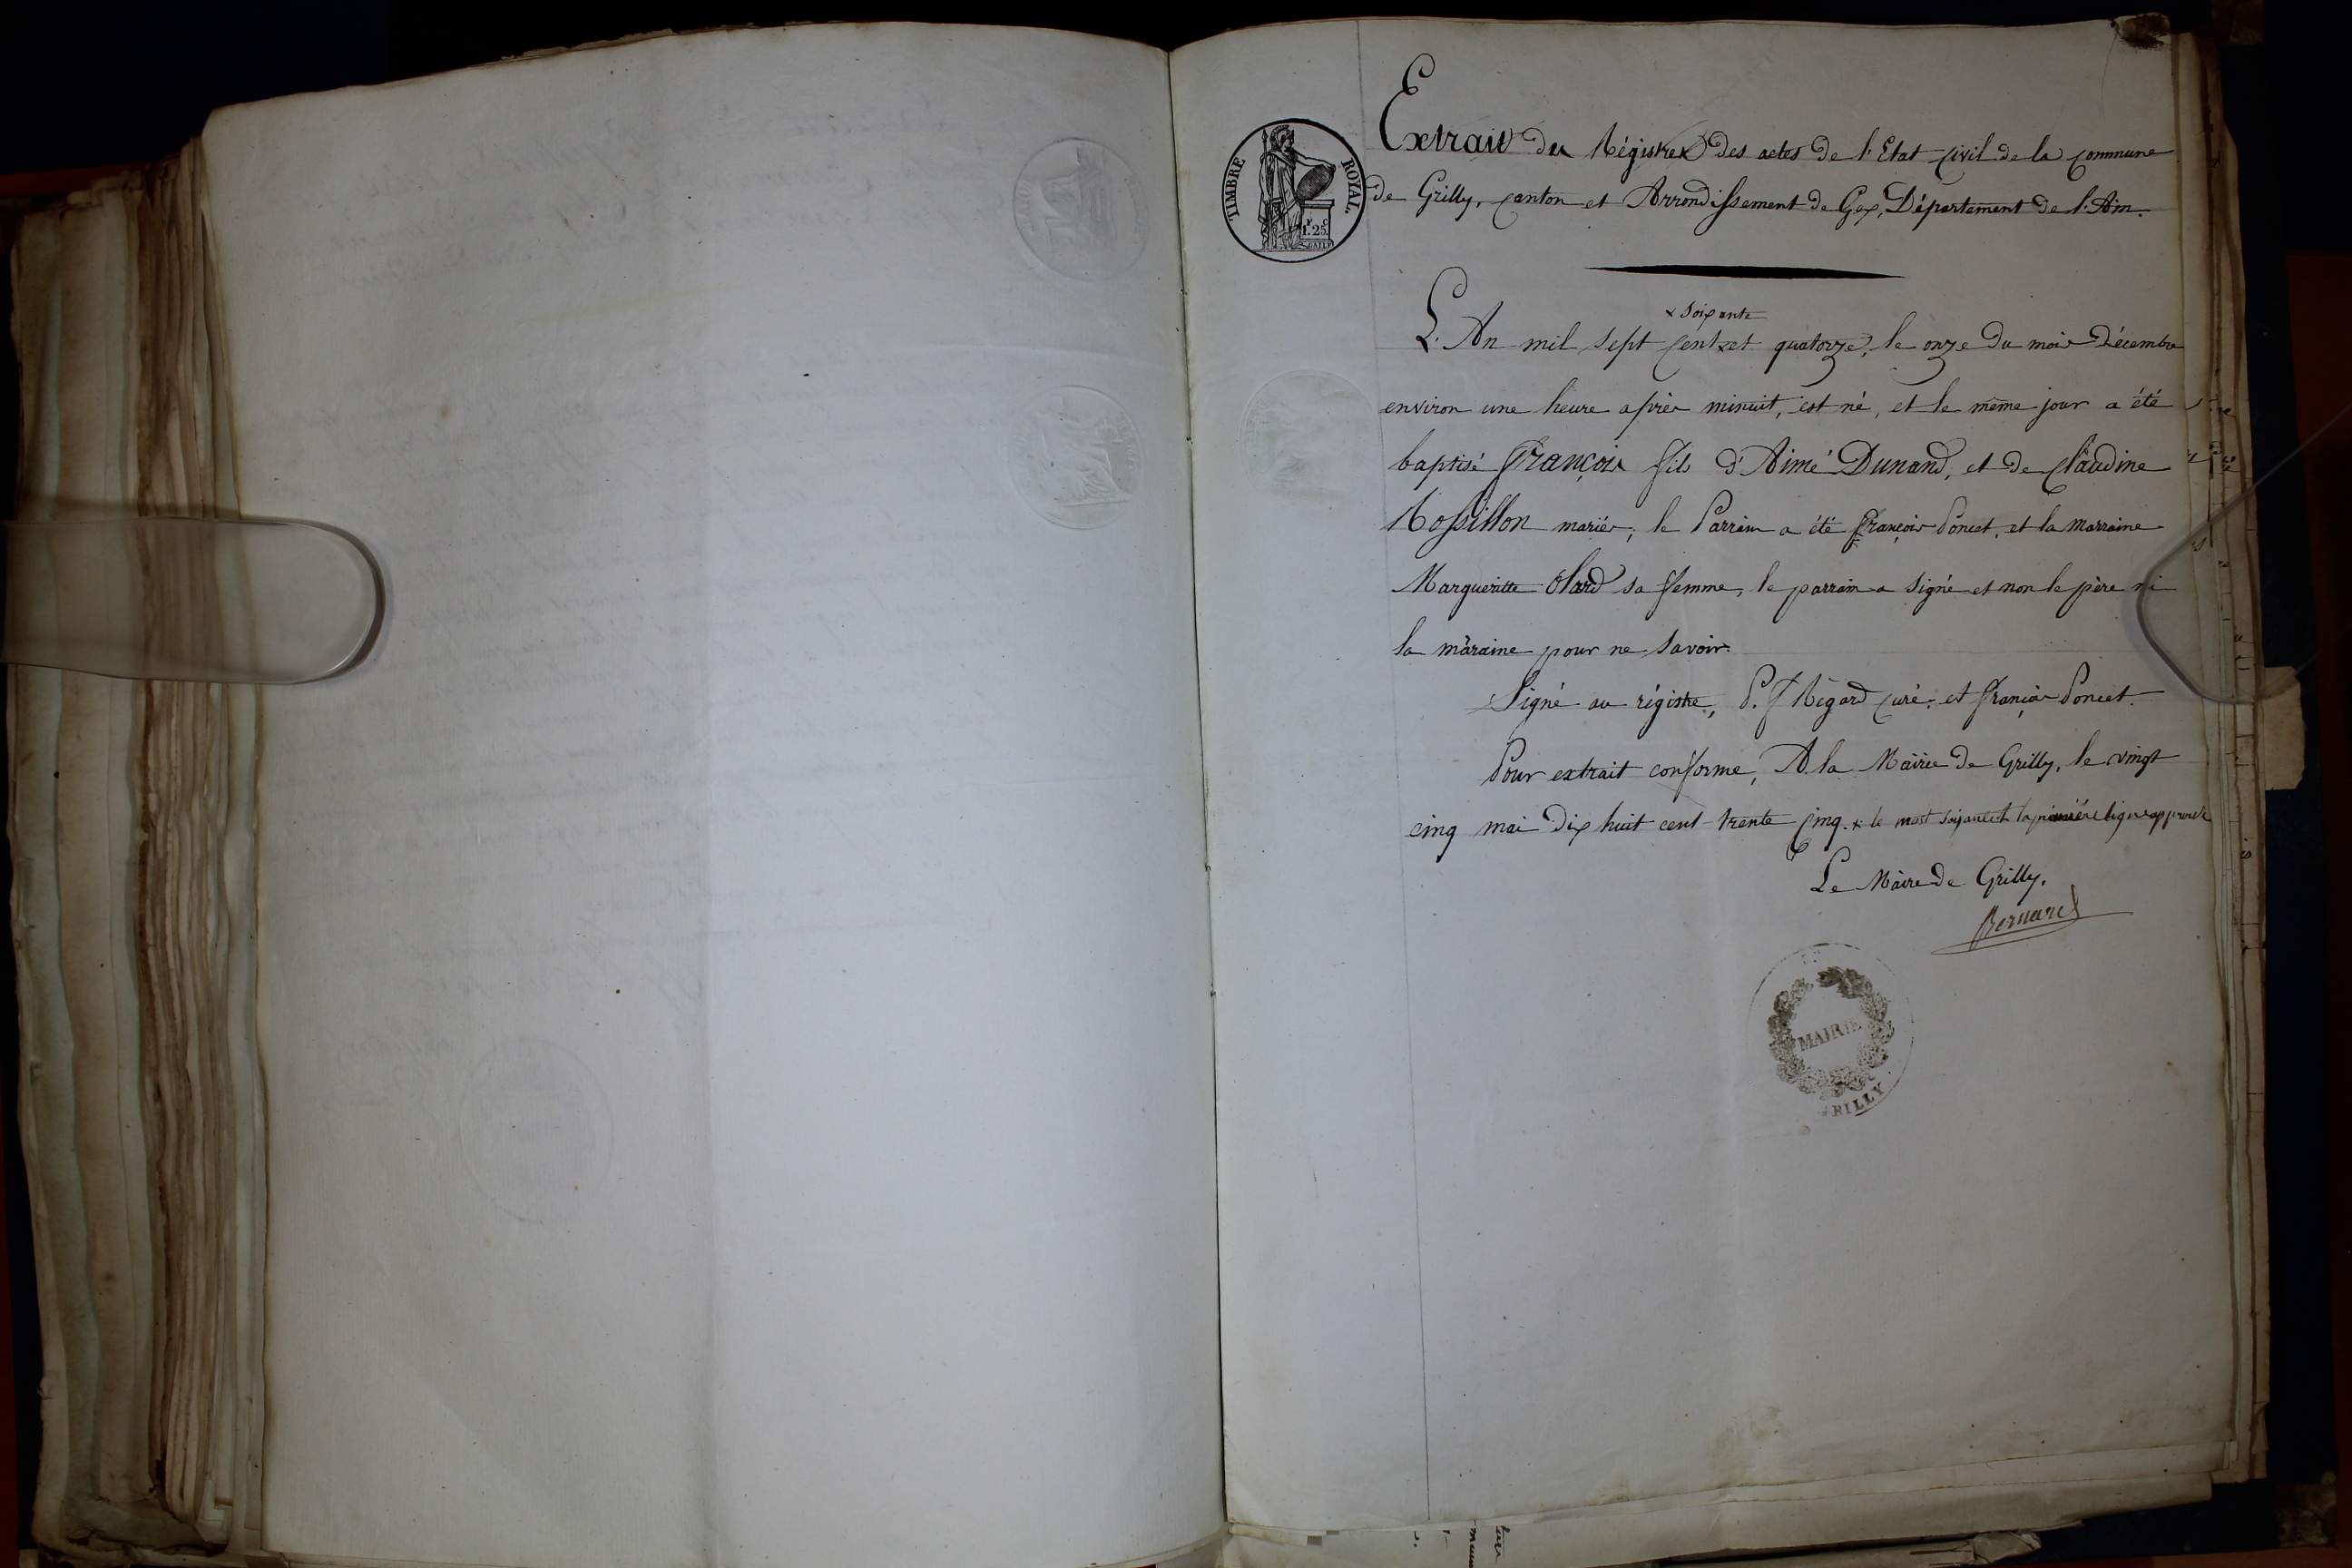 TIMBRE ROYAL.
1.f 25.c
Extrait du Régistre des actes de l'Etat civil de la commune
de Grilly, canton et Arrondissement de Gex, Département de l'Ain.
x soixante
L'An mil sept cent x et quatorze, le onze du mois Décembre
environ une heure après minuit, est né, et le même jour a été
baptisé François fils d'Aimé Dunand, et de Claudine
Rossillon mariés, le Parrain a été François Poncet, et la marraine
Margueritte Olard sa femme, le parrain a signé et non le père ni
la maraine pour ne savoir.
Signé au régistre, P. F Régard curé, et François Poncet.
Pour extrait conforme, A la Mairie de Grilly, le vingt
cinq mai dix huit cent trente cinq. x le mot soixante à la première ligne approuvé
Le Maire de Grilly,
Bernard
MAIRIE
GRILLY